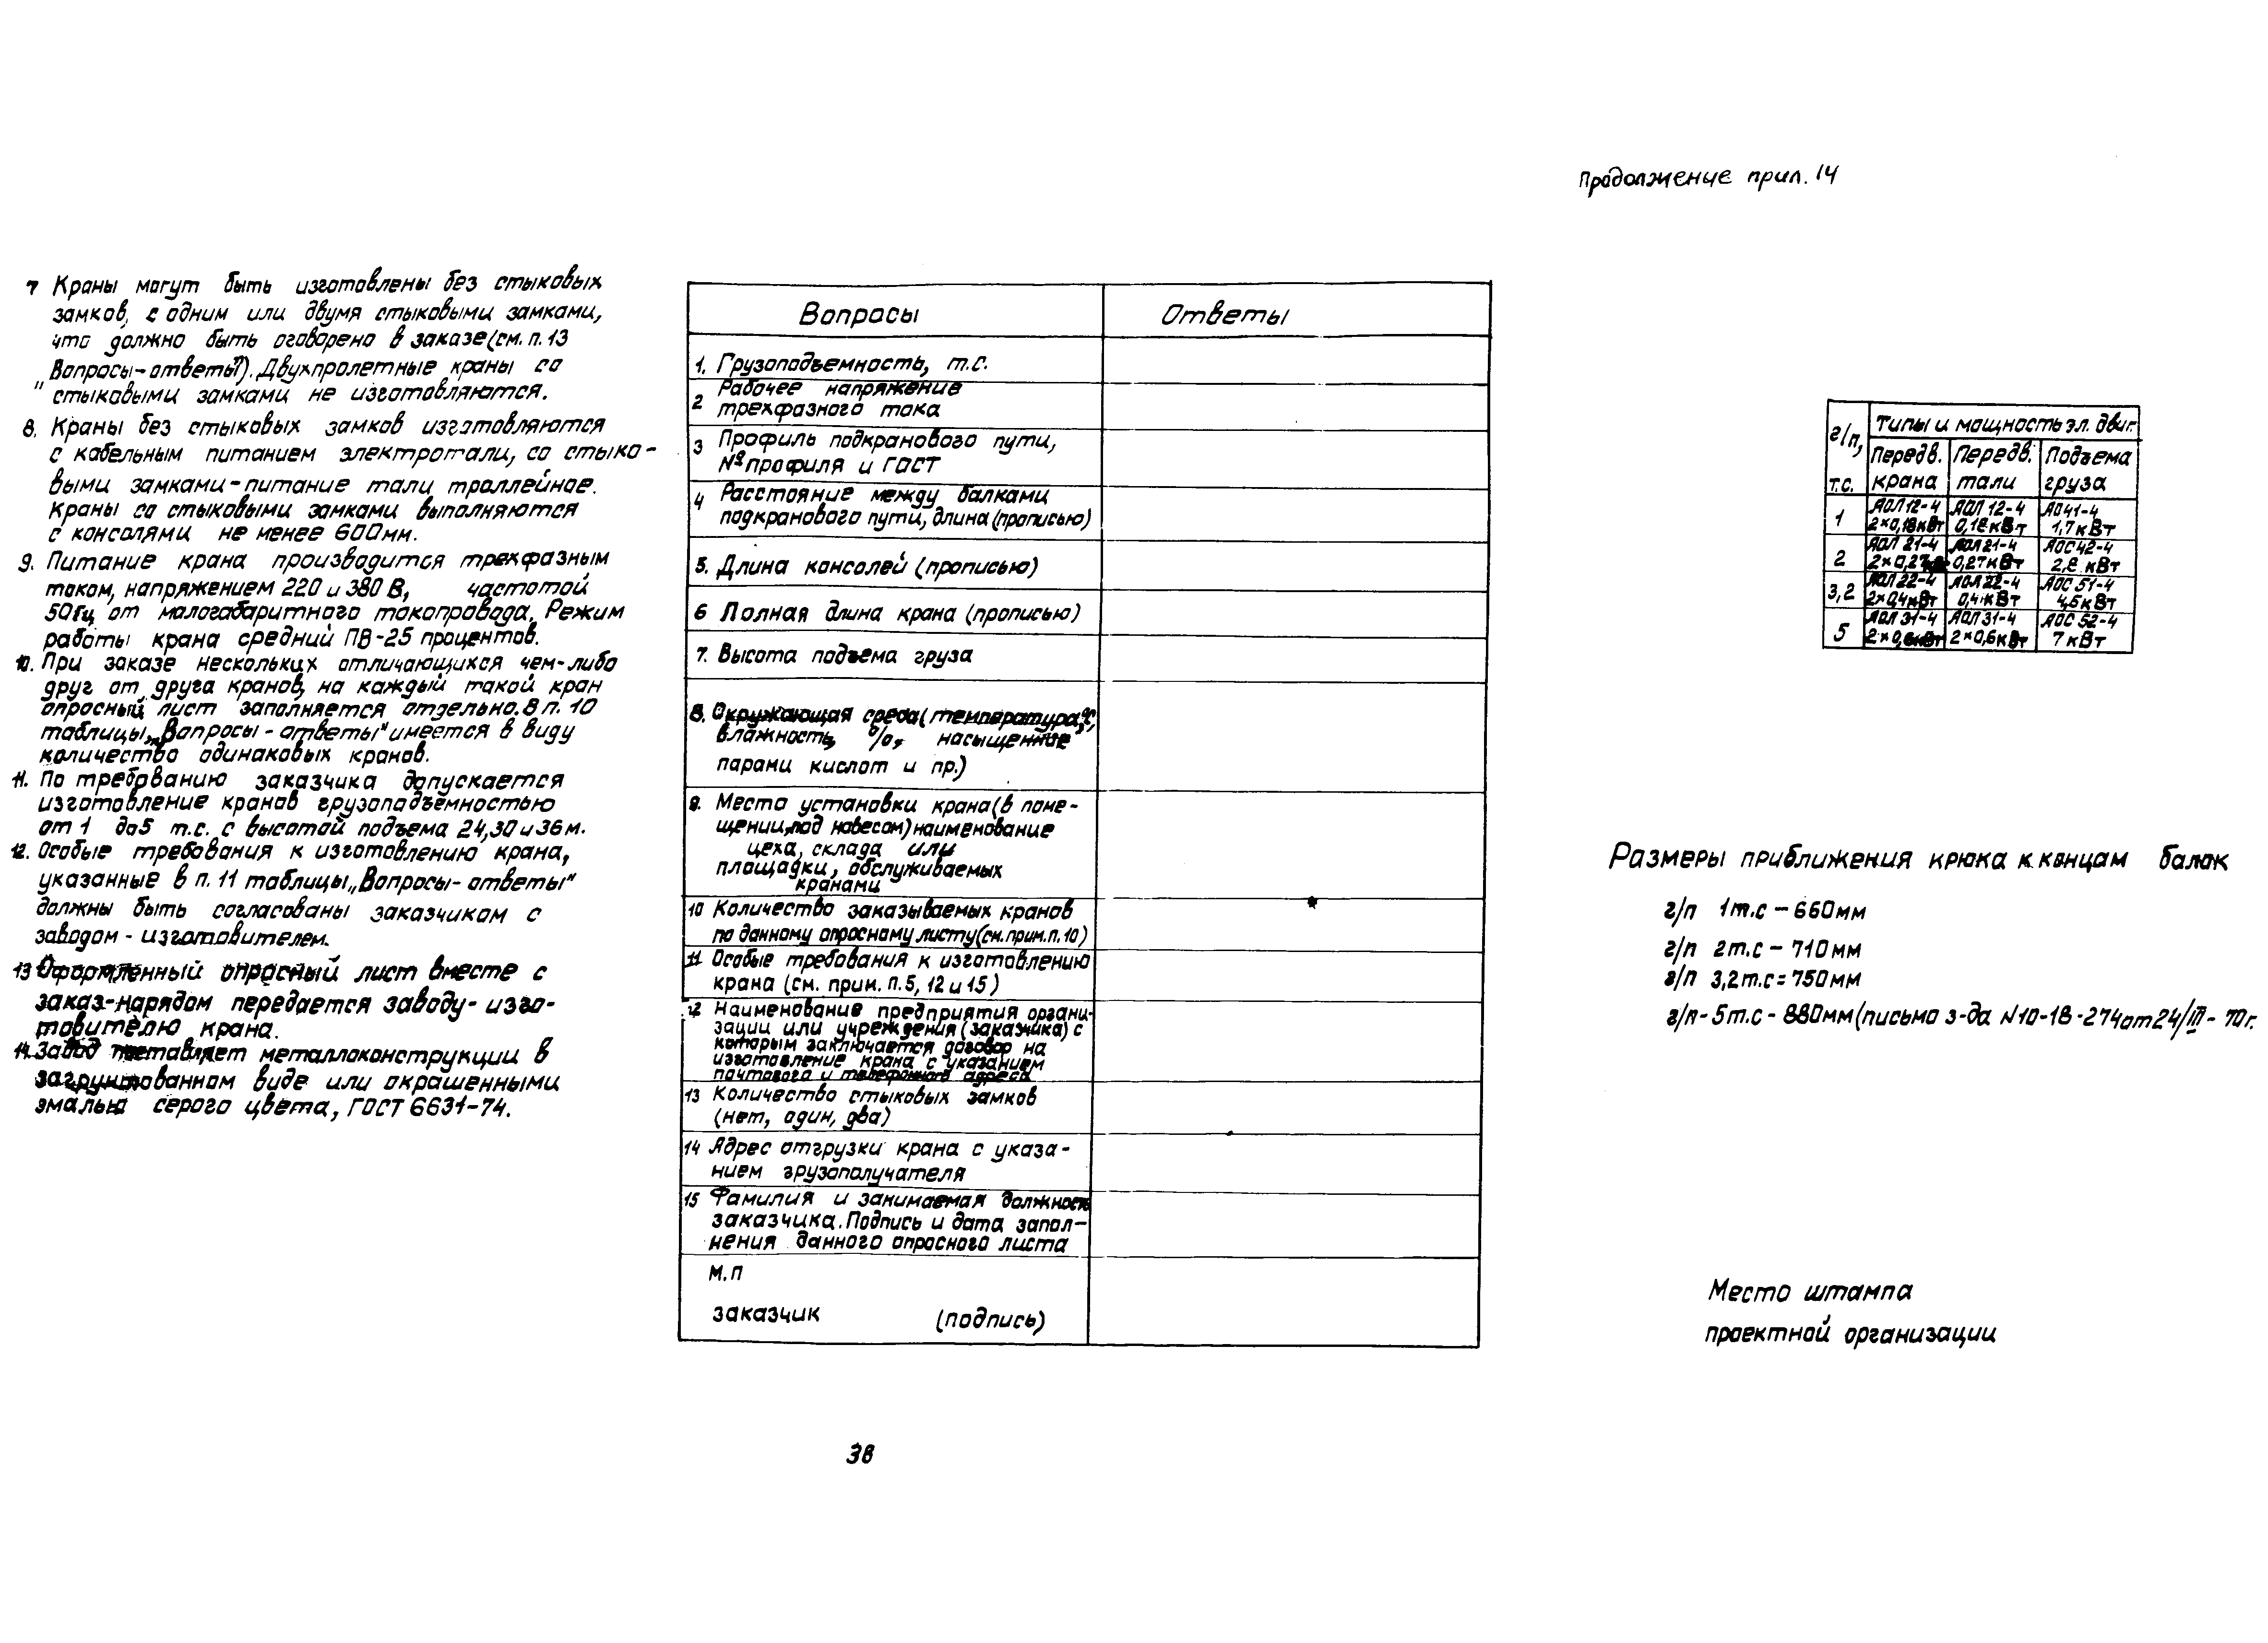 Продолжение прил. 14
7 Краны могут быть изготовлены без стыковых
замков, с одним или двумя стыковыми замками,
что должно быть оговорено в заказе (см. п. 13
"Вопросы-ответы"). Двухпролетные краны со
стыковыми замками не изготовляются.
8. Краны без стыковых замков изготовляются
с кабельным питанием электротали, со стыко-
выми замками - питание тали троллейное.
Краны со стыковыми замками выполняются
с консолями не менее 600мм.
9. Питание крана производится трехфазным
током, напряжением 220 и 380 В, частотой
50гц от малогабаритного токопровода. Режим
работы крана средний ПВ-25 процентов.
10. При заказе нескольких отличающихся чем-либо
друг от друга кранов, на каждый такой кран
опросный лист заполняется отдельно. В п. 10
таблицы „Вопросы - ответы" имеется в виду
количество одинаковых кранов.
11. По требованию заказчика допускается
изготовление кранов грузоподъемностью
от 1 до 5 т.с. с высотой подъема 24,30 и 36 м.
12. Особые требования к изготовлению крана,
указанные в п. 11 таблицы „Вопросы- ответы"
должны быть согласованы заказчиком с
заводом - изготовителем.
13 Оформленный опросный лист вместе с
заказ-нарядом передается заводу- изго-
товителю крана.
14. Завод поставляет металлоконструкции в
загрунтованном виде или окрашенными
эмалью серого цвета, ГОСТ 6631-74.
Вопросы Ответы
1. Грузоподъемность, т.с.
2 Рабочее напряжение
трехфазного тока
3 Профиль подкранового пути,
№ профиля и ГОСТ
4 Расстояние между балками
подкранового пути, длина (прописью)
5. Длина консолей (прописью)
6 Полная длина крана (прописью)
7. Высота подъема груза
8. Окружающая среда (температура,°С,
влажность, %, насыщение
парами кислот и пр.)
9. Место установки крана (в поме-
щении, под навесом) наименование
цеха, склада или
площадки, обслуживаемых
кранами
10 Количество заказываемых кранов
по данному опросному листу (см. прим. п. 10)
11 Особые требования к изготовлению
крана (см. прим. п. 5, 12 и 15)
12 Наименование предприятия органи-
зации или учреждения (заказчика) с
которым заключается договор на
изготовление крана с указанием
почтового и телефонного адреса
13 Количество стыковых замков
(нет, один, два)
14 Адрес отгрузки крана с указа-
нием грузополучателя
15 Фамилия и занимаемая должность
заказчика. Подпись и дата запол-
нения данного опросного листа
М.П
заказчик (подпись)
г/п, т.с. Типы и мощность эл. двиг.
Передв. крана Передв. тали Подъема груза
1 АОЛ 12-4 АОЛ 12-4 АО41-4
2×0,18кВт 0,18кВт 1,7кВт
2 АОЛ 21-4 АОЛ 21-4 АОС42-4
2×0,27кВт 0,27кВт 2,8 кВт
3,2 АОЛ 22-4 АОЛ 22-4 АОС 51-4
2×0,4кВт 0,4кВт 4,5кВт
5 АОЛ 31-4 АОЛ 31-4 АОС 52-4
2×0,6кВт 2×0,6кВт 7кВт
Размеры приближения крюка к концам балок
г/п 1т.с - 660мм
г/п 2т.с - 710мм
г/п 3,2т.с = 750мм
г/п- 5т.с - 880мм (письмо з-да N10-18-274 от 24/III - 70г.
Место штампа
проектной организации
38